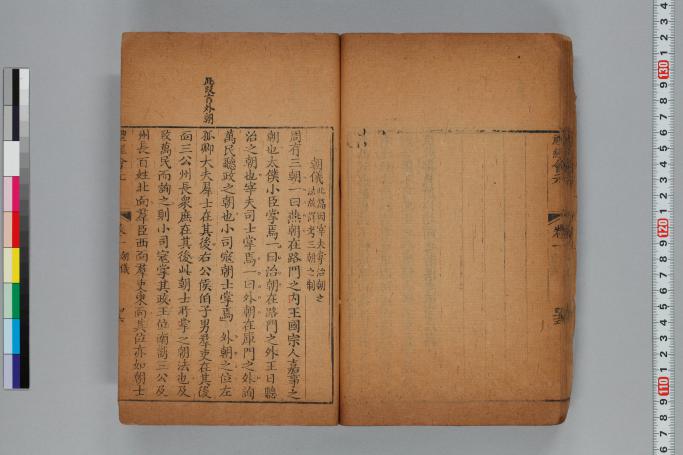 朝儀此篇因宰夫掌治朝之
法故詳考三朝之制
周有三朝一曰燕朝在路門之内王國宗人嘉事之
朝也太僕小臣掌焉一曰治朝在路門之外王日聽
治之朝也宰夫司士掌焉一曰外朝在庫門之外詢
萬民聽政之朝也小司寇朝士掌焉外朝之位左
孤卿大夫羣士在其後右公侯伯子男羣吏在其後
面三公州長衆庶在其後此朝士所掌之朝法也及
致萬民而詢之則小司寇掌其政王位南嚮三公及
州長百姓北面羣臣西面羣吏東面其位亦如朝士
朝儀